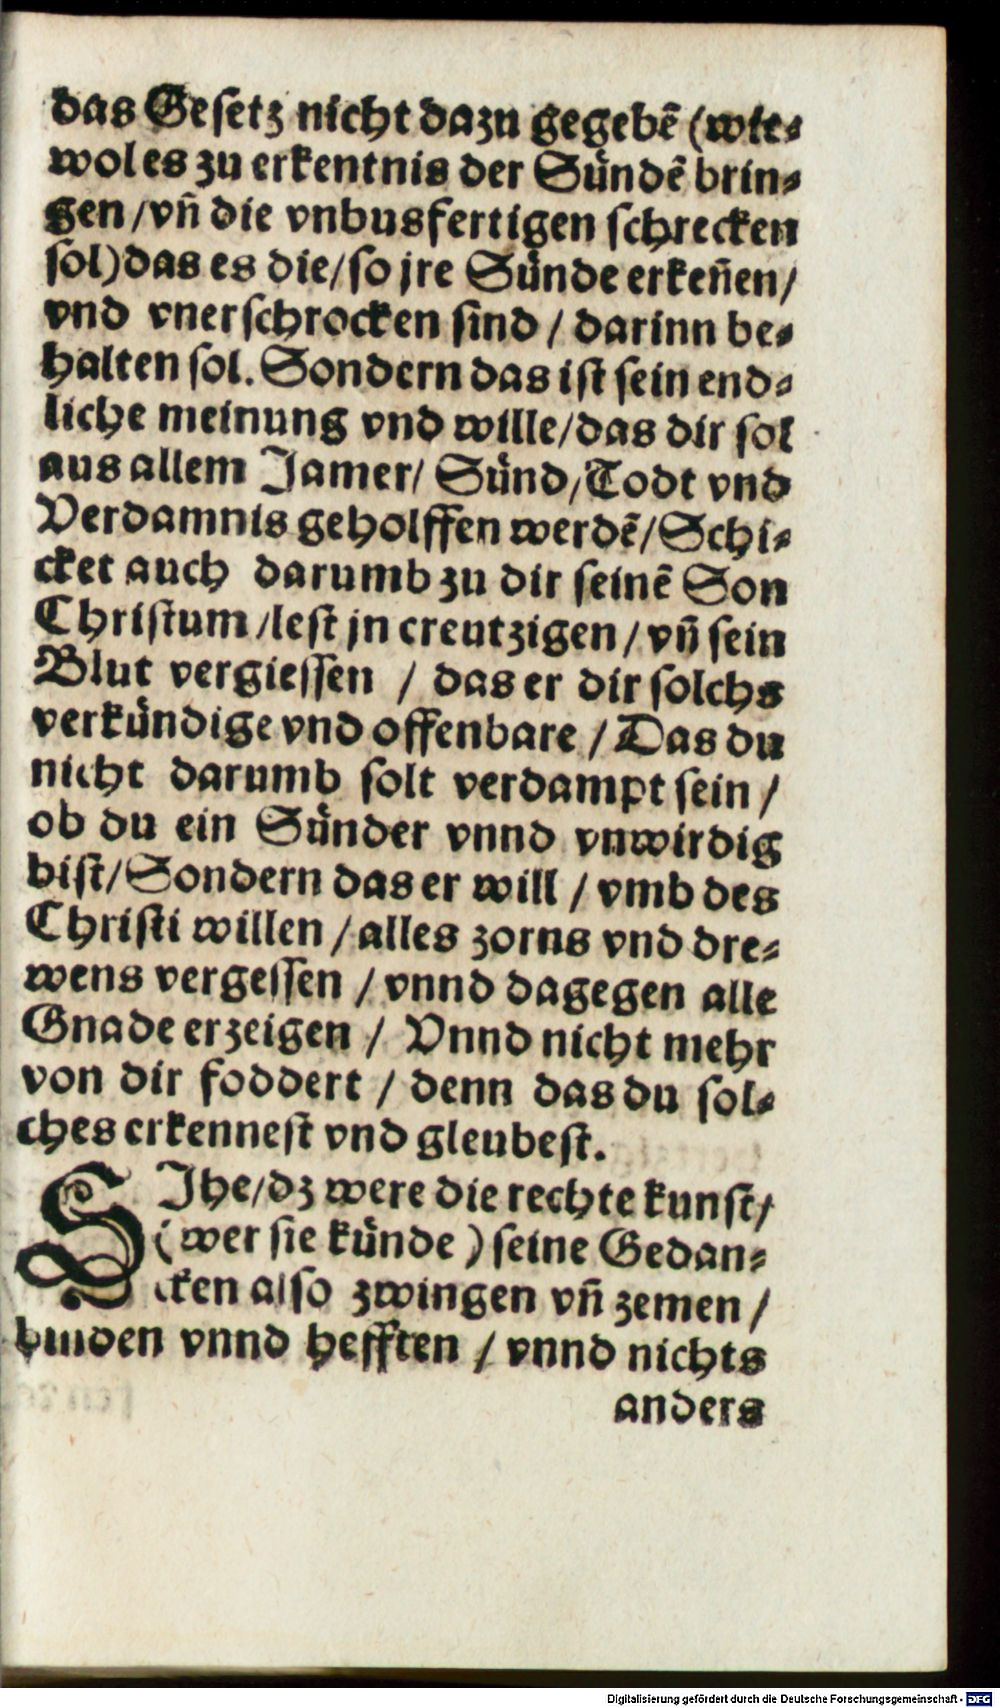 das Gesetz nicht dazu gegebē (wie⸗
wol es zu erkentnis der Sündē brin⸗
gen / vn̄ die vnbusfertigen schrecken
sol) das es die / so jre Sünde erkeñen /
vnd vnerschrocken sind / darinn be⸗
halten sol. Sondern das ist sein end⸗
liche meinung vnd wille / das dir sol
aus allem Jamer / Sünd / Todt vnd
Verdamnis geholffen werdē / Schi⸗
cket auch darumb zu dir seinē Son
Christum / lest jn creutzigen / vn̄ sein
Blut vergiessen / das er dir solchs
verkündige vnd offenbare / Das du
nicht darumb solt verdampt sein /
ob du ein Sünder vnnd vnwirdig
bist / Sondern das er will / vmb des
Christi willen / alles zorns vnd dre⸗
wens vergessen / vnnd dagegen alle
Gnade erzeigen / Vnnd nicht mehr
von dir foddert / denn das du sol⸗
ches erkennest vnd gleubest.
SIhe / dz were die rechte kunst /
(wer sie künde) seine Gedan⸗
cken also zwingen vn̄ zemen /
binden vnnd hefften / vnnd nichts
anders
Digitalisierung gefördert durch die Deutsche Forschungsgemeinschaft - DFG